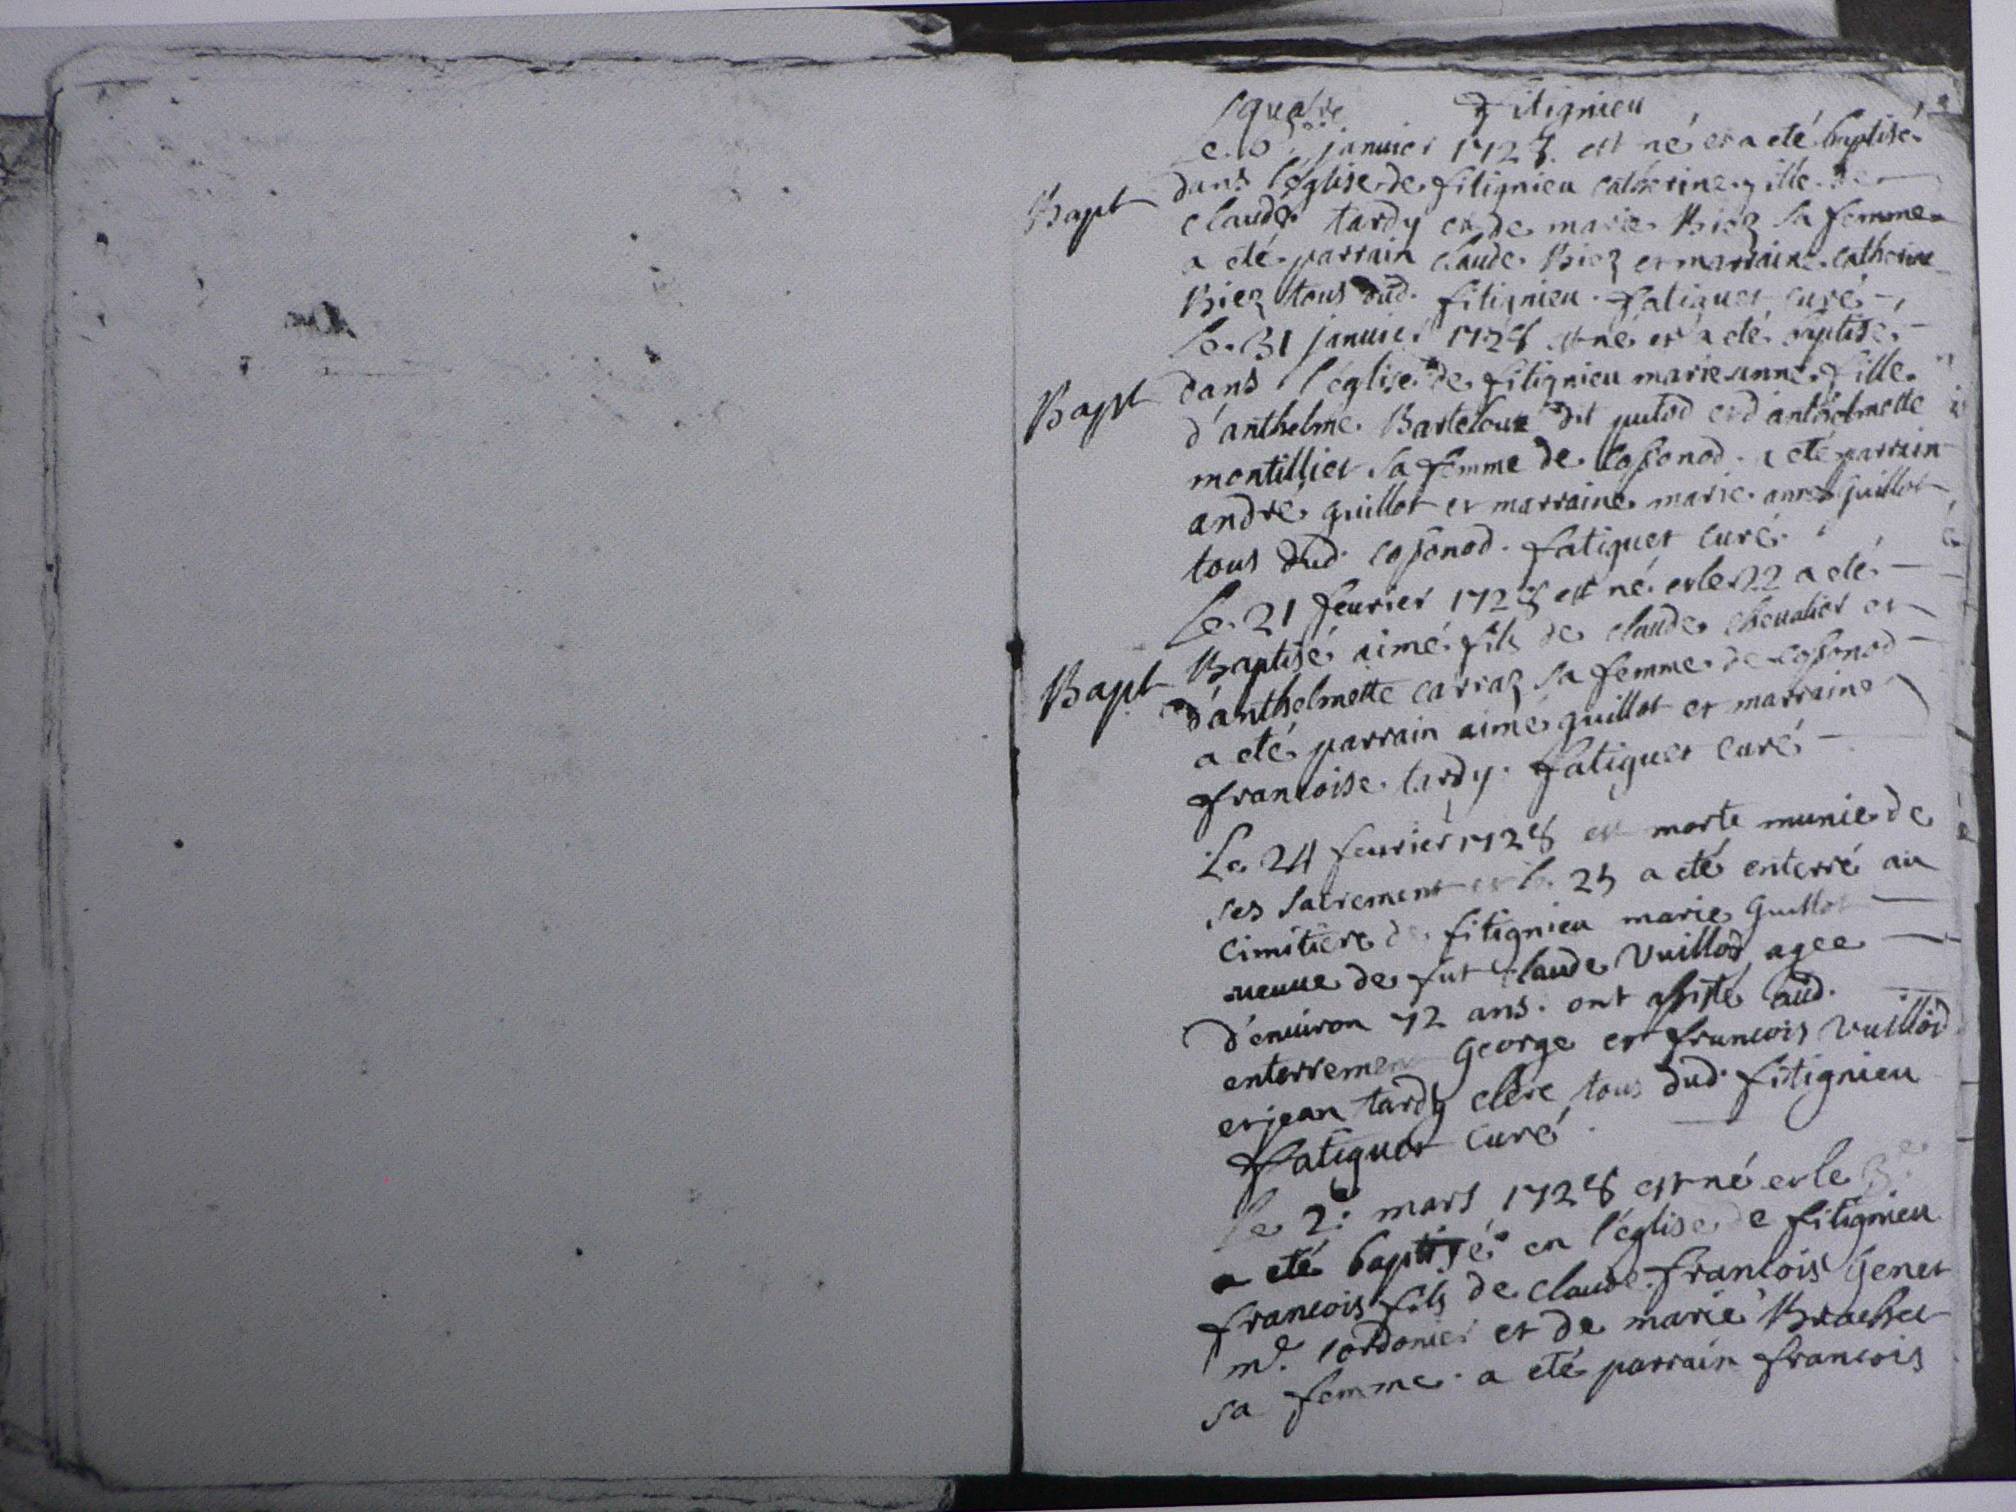 quatre fitignieu
Le janvier 1728 est né et a eté baptisé
Bapt dans l'église de fitignieu catherine fille de
claude tardy et de marie Biez sa femme
a eté parrain claude Biez et marraine catherine
Biez tous dud. fitignieu. fatiguet curé
Le 31 janvier 1728 est né et a eté baptisé
Bapt dans l'église de fitignieu marie anne fille
d'anthelme dit putod et d'anthelmette
montillier sa femme de cossonod. a eté parrain
andré guillot et marraine marie anne guillot
tous dud. cossonod. fatiguet curé.
Le 21 feurier 1728 est né et le 22 a eté
Bapt Baptisé aimé fils de claude cheualier et
d'anthelmette carraz sa femme de cossonod
a eté parrain aimé guillot et marraine
francoise tardy. fatiguet curé
Le 24 feurier 1728 est morte munie de
ses sacrement et le 25 a eté enterré au
cimitiere de fitignieu marie Guillot
ueuue de fut claude Vuillod agee
d'enuiron 72 ans. ont assisté aud.
enterrement George et francois vuillod
et jean tardy clerc tous dud. fitignieu
fatiguet curé.
Le 2e mars 1728 est né et le 3e
a eté baptisé en l'église de fitignieu
francois fils de claude francois Genet
me. cordonier et de marie Brachet
sa femme. a eté parrain francois